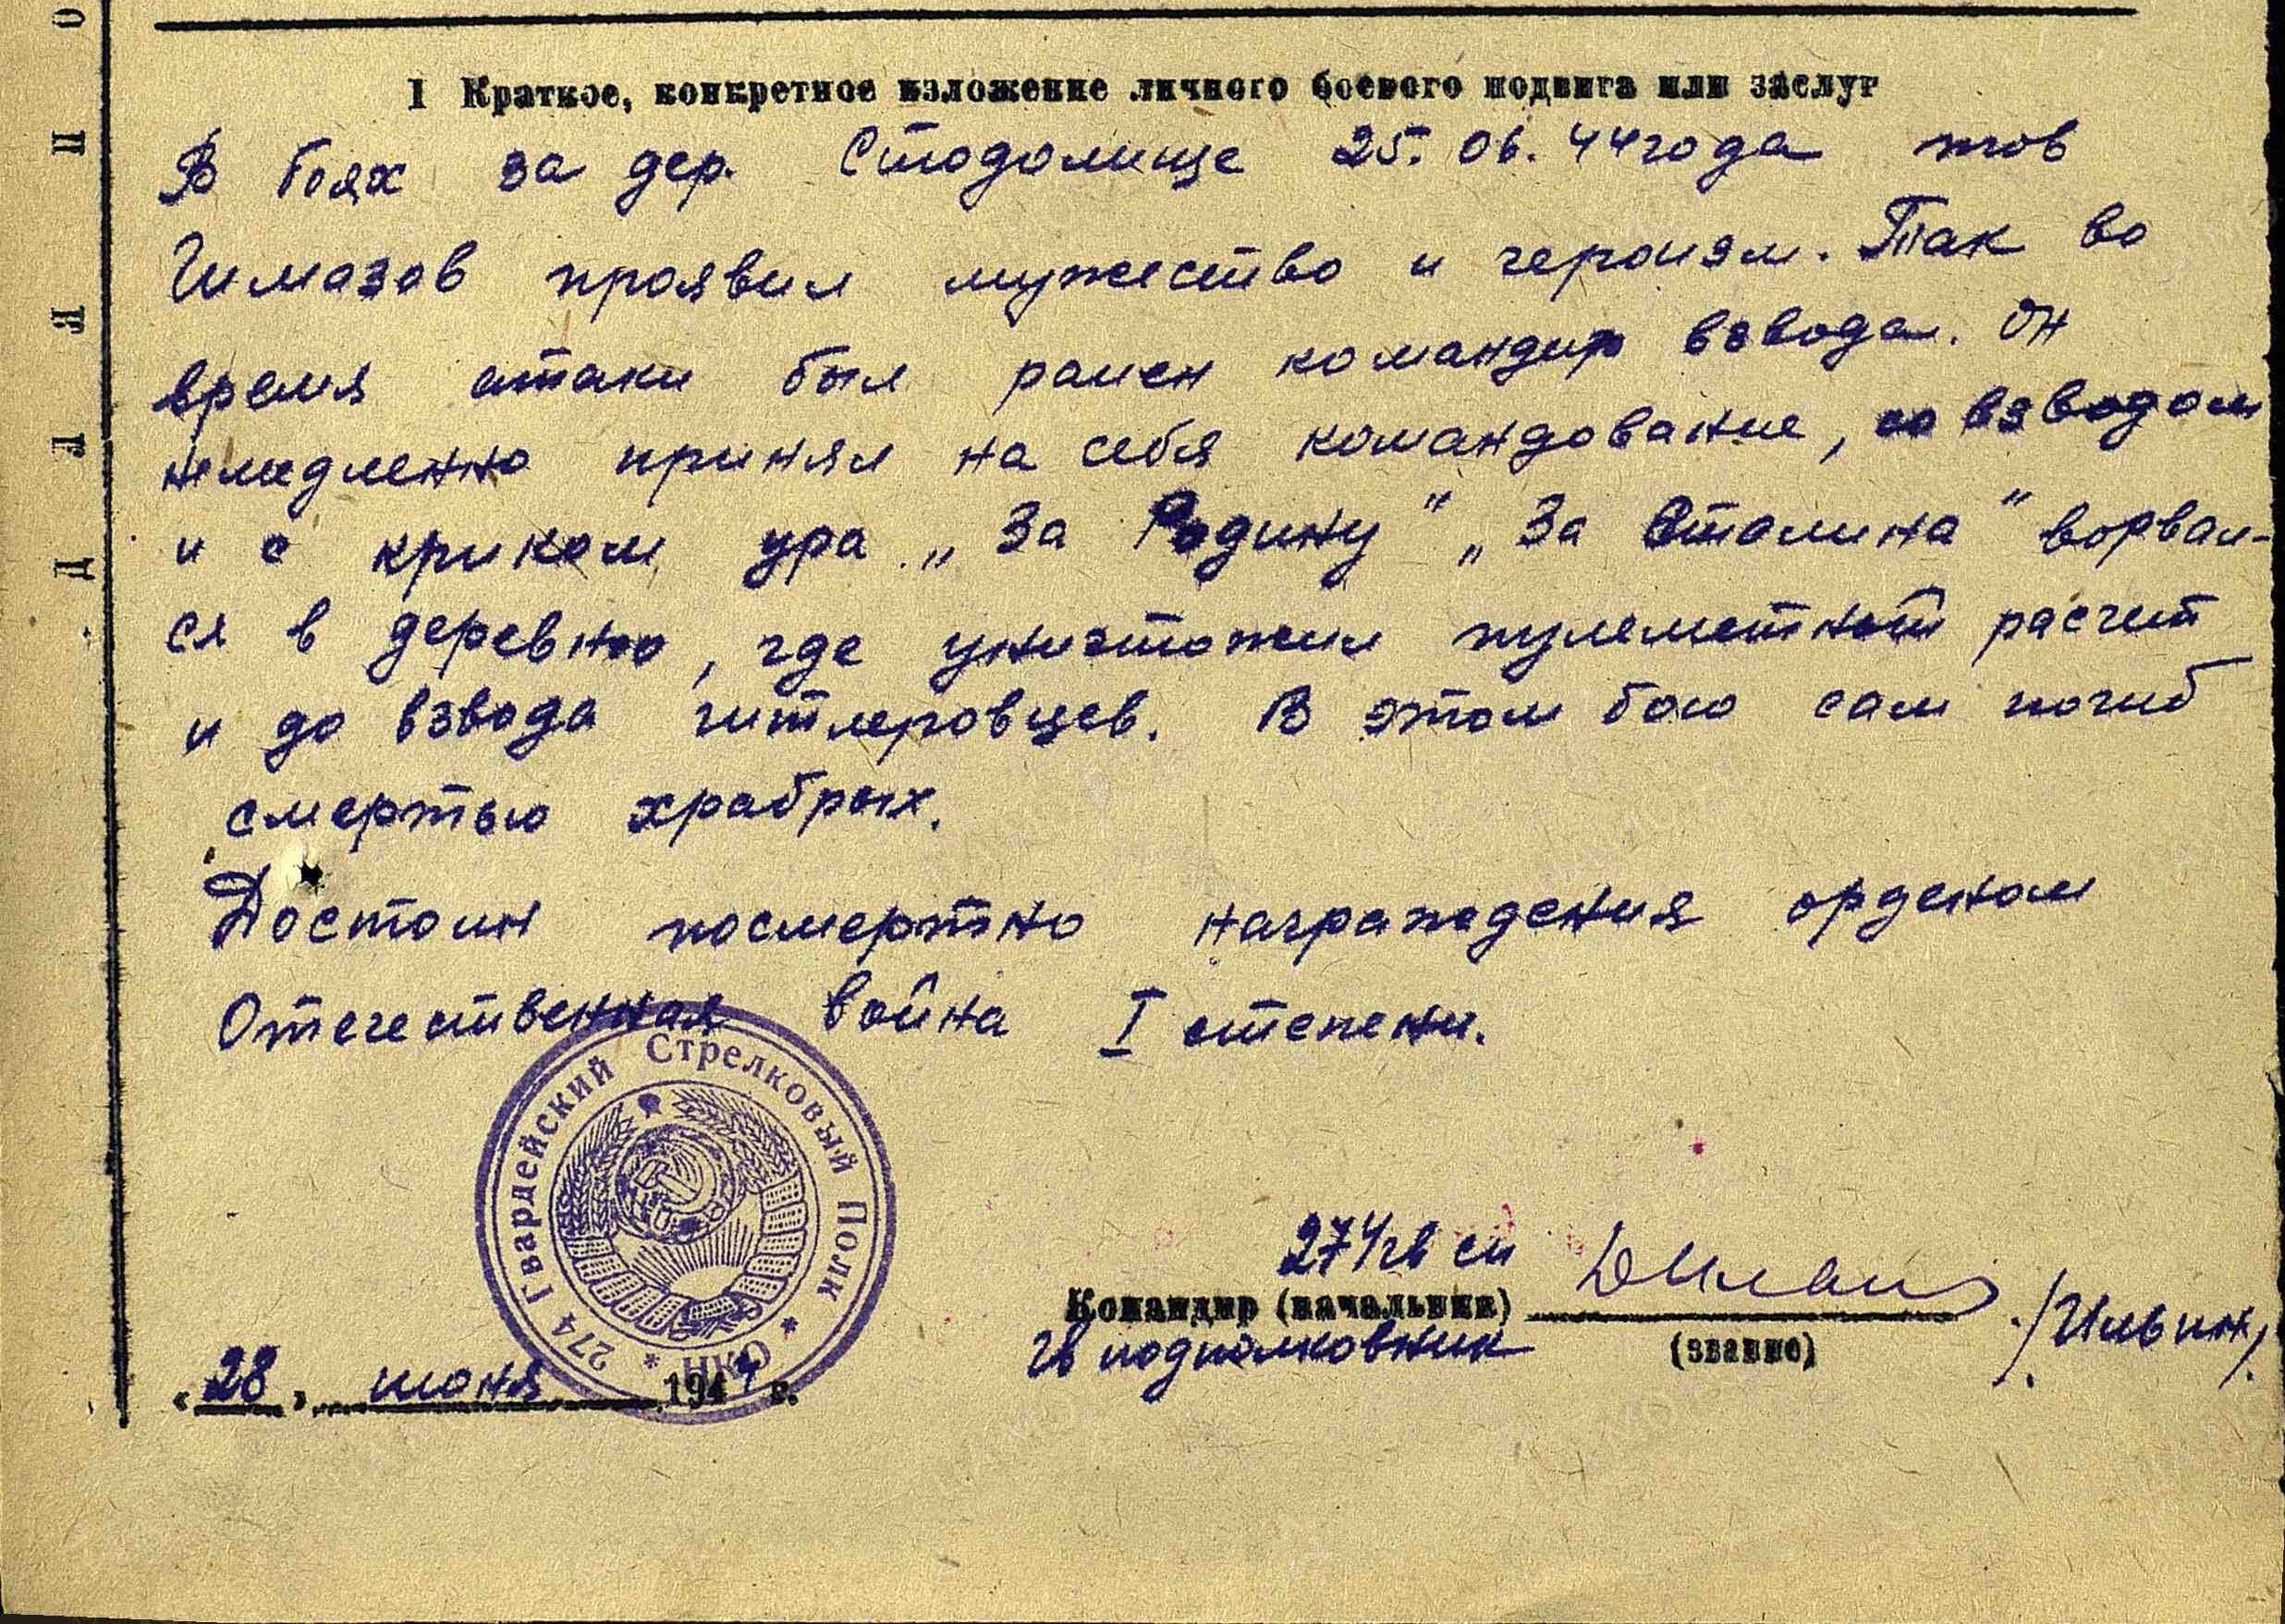 I Краткое, конкретное изложение личного боевого подвига или заслуг
В боях за дер. Стодолище 25.06.44 года тов
Шмазов проявил мужество и героизм. Так во
время атаки был ранен командир взвода. Он
немедленно принял на себя командование, со взводом
и с криком ура „За Родину" „За Сталина" ворвал-
ся в деревню, где уничтожил пулеметный расчет
и до взвода гитлеровцев. В этом бою сам погиб
смертью храбрых.
Достоин посмертно награждения орденом
Отечественная война I степени.
274 Гвардейский Стрелковый Полк * НКО *
274 гв сп
Командир (начальник)
гв подполковник
(звание)
/Ильин/
„28" июня 1944 г.